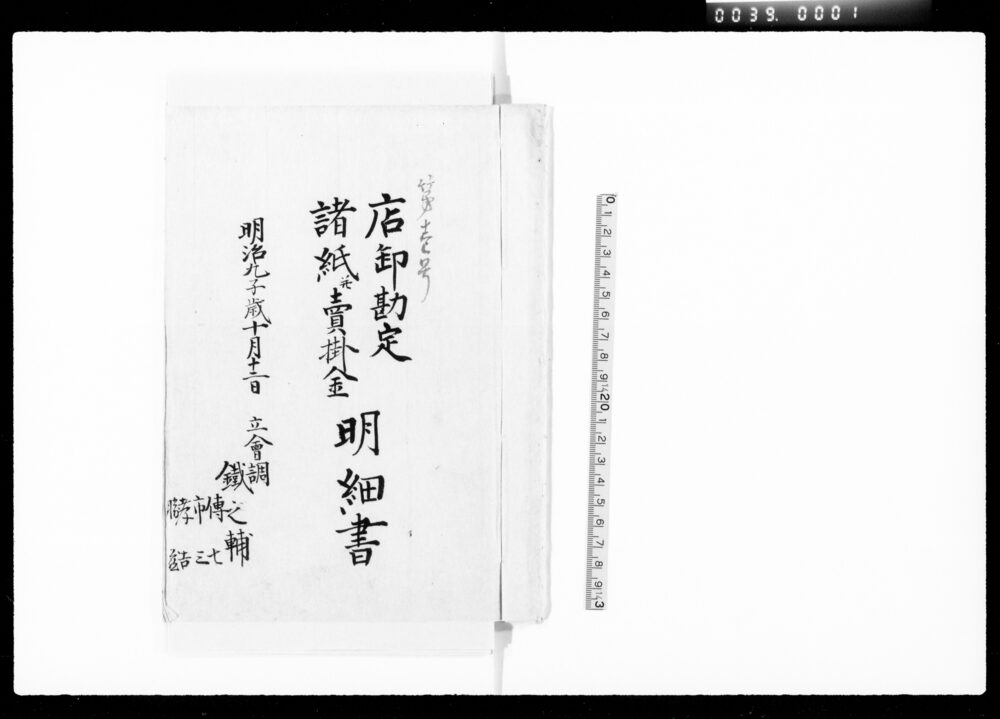 0039. 0001
第壱号
店卸勘定
諸紙并賣掛金
明細書
明治九子歳十月十二日
立會調
鐵之輔
傳七
市三
0 1 2 3 4 5 6 7 8 9 20 1 2 3 4 5 6 7 8 9 3